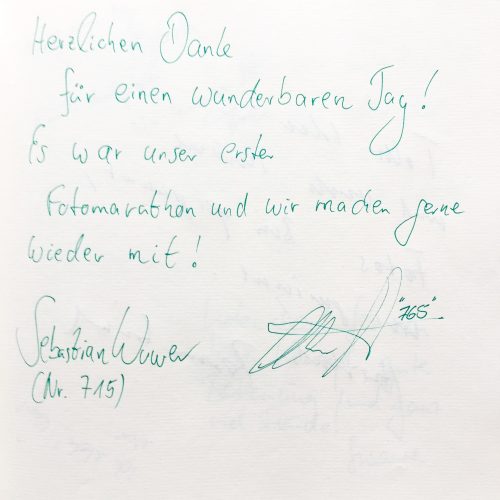 Herzlichen Dank
für einen wunderbaren Tag!
Es war unser erster
Fotomarathon und wir machen gerne
wieder mit!
Sebastian Wuwer
(Nr. 715)
"765"